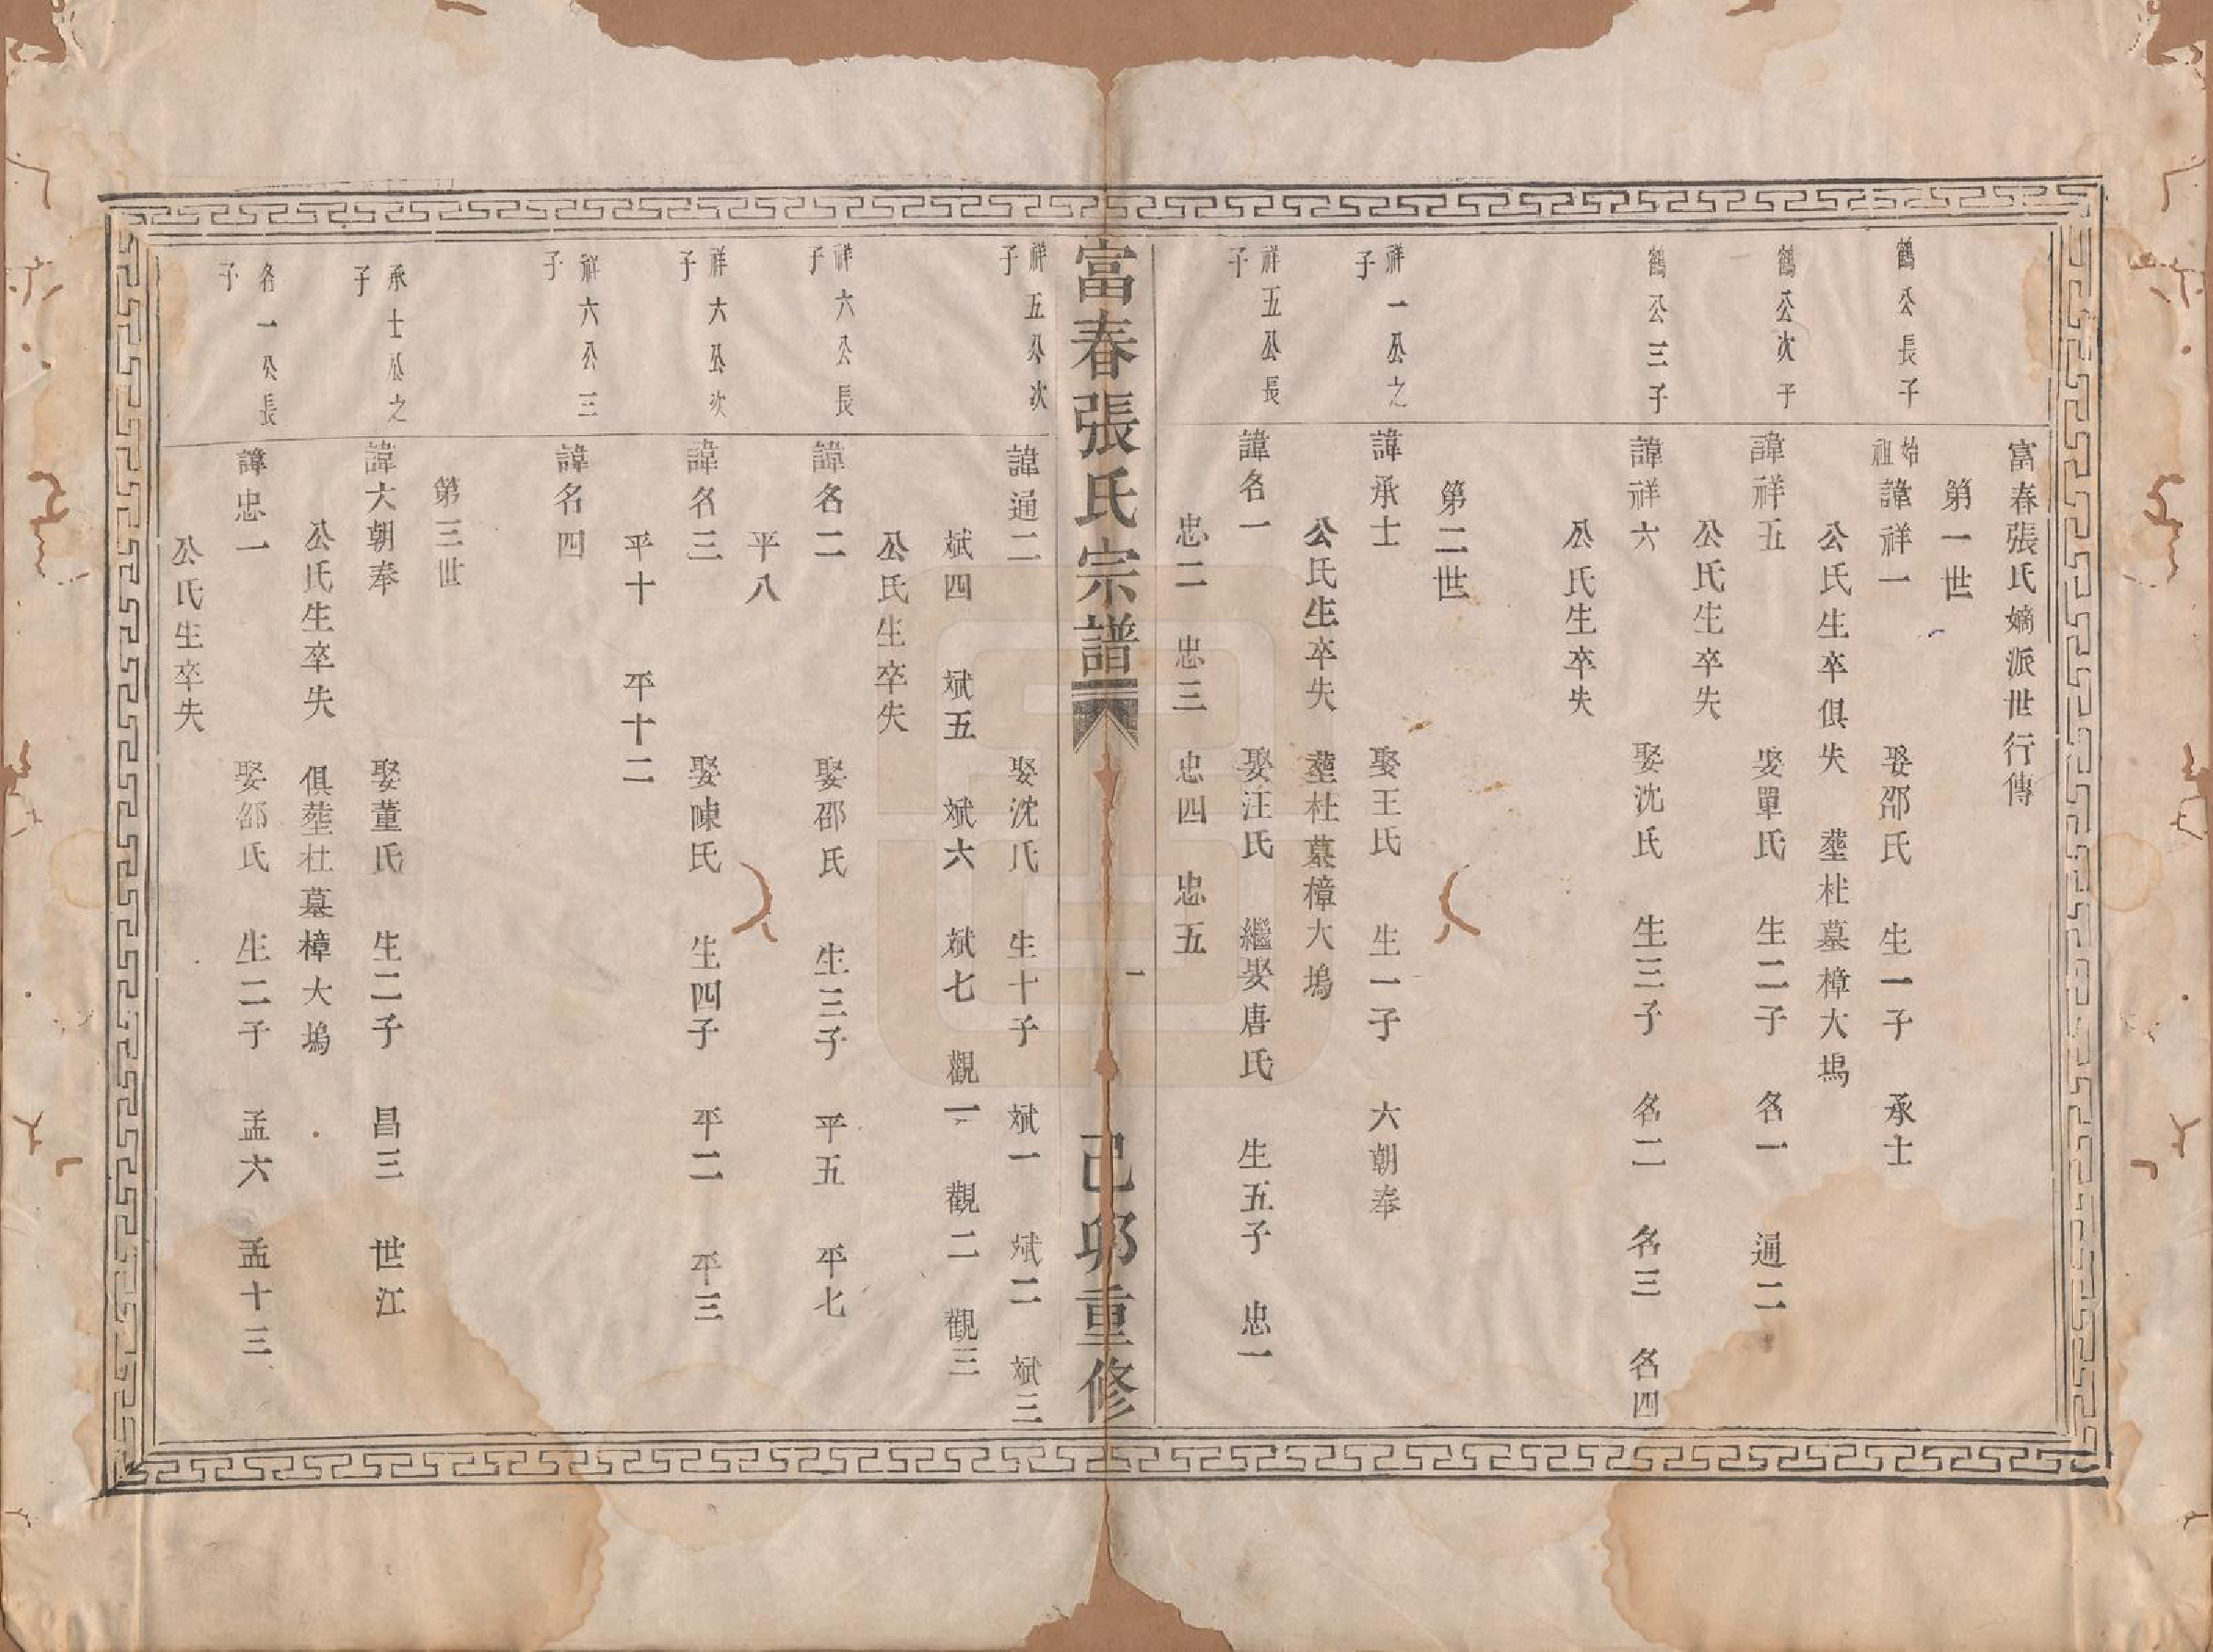 富春張氏嫡派世行傳
第一世
鶴公長子
始祖諱祥一 娶邵氏 生一子 承士
公氏生卒俱失 塟杜墓樟大塢
鶴公次子
諱祥五 娶單氏 生二子 名一 通二
公氏生卒失
鶴公三子
諱祥六 娶沈氏 生三子 名二 名三 名四
公氏生卒失
第二世
祥一公之子
諱承士 娶王氏 生一子 六朝奉
公氏生卒失 塟杜墓樟大塢
祥五公長子
諱名一 娶汪氏 繼娶唐氏 生五子 忠一
忠二 忠三 忠四 忠五
富春張氏宗譜 一 己卯重修
祥五公次子
諱通二 娶沈氏 生十子 斌一 斌二 斌三
斌四 斌五 斌六 斌七 觀一 觀二 觀三
公氏生卒失
祥六公長子
諱名二 娶邵氏 生三子 平五 平七
平八
祥六公次子
諱名三 娶陳氏 生四子 平二 平三
平十 平十二
祥六公三子
諱名四
第三世
承士公之子
諱大朝奉 娶董氏 生二子 昌三 世江
公氏生卒失 俱塟杜墓樟大塢
名一公長子
諱忠一 娶邵氏 生二子 孟六 孟十三
公氏生卒失